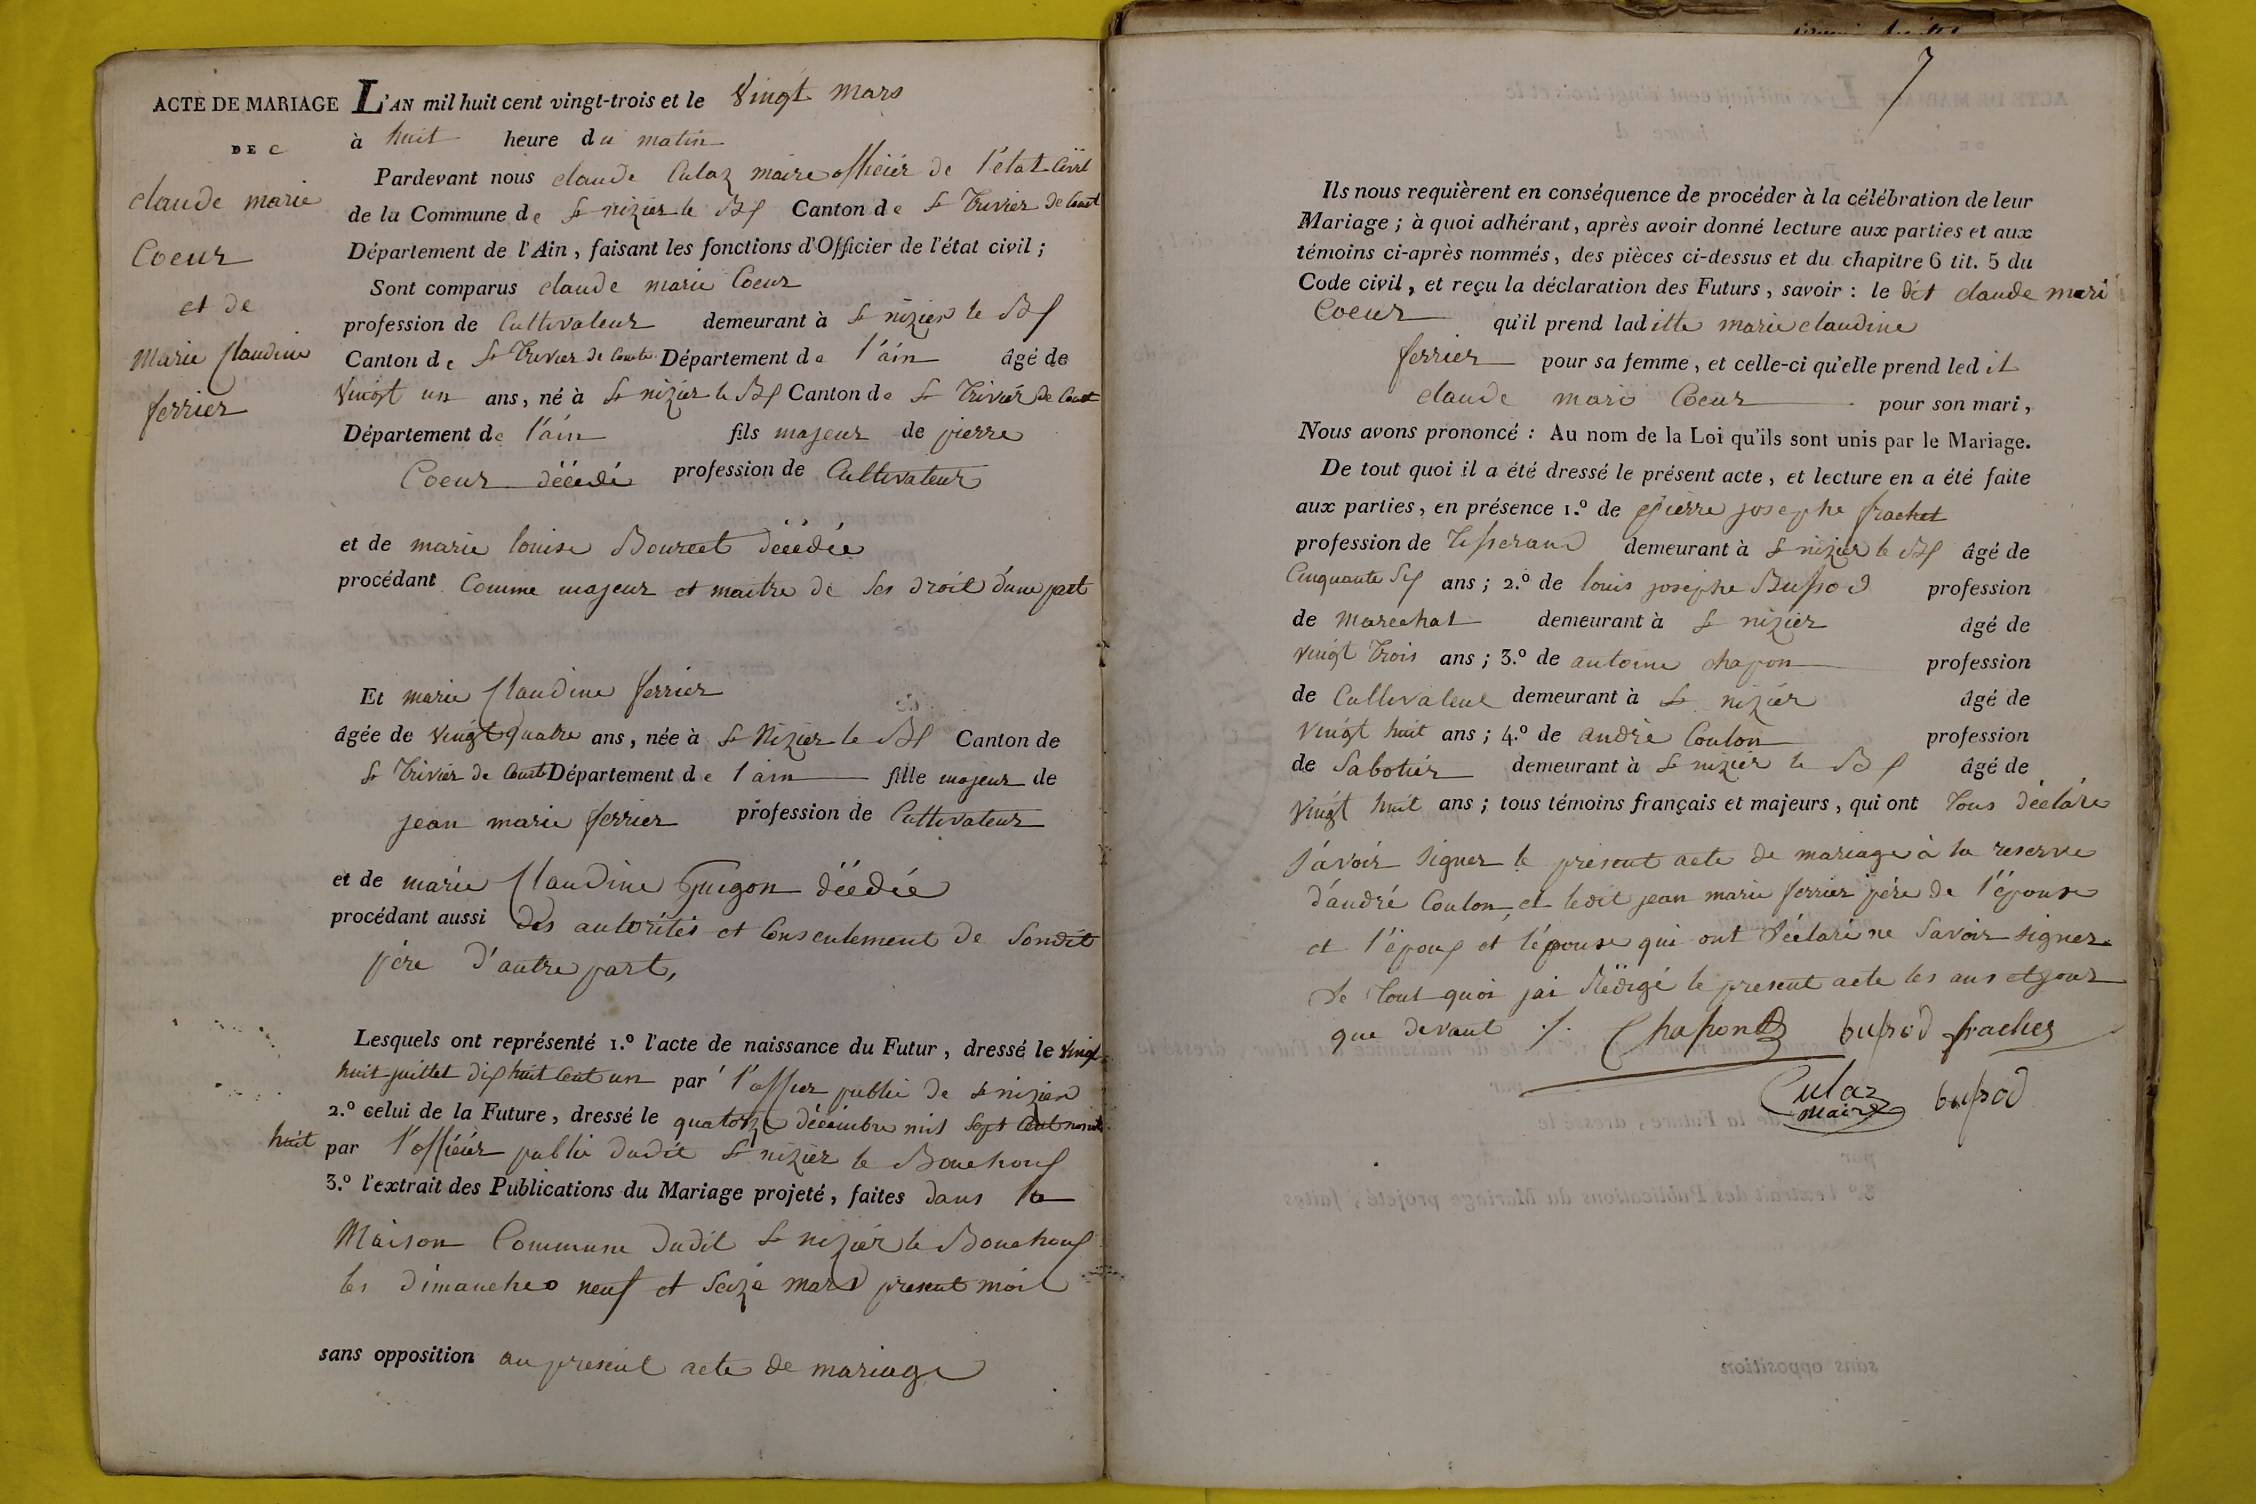 ACTE DE MARIAGE
DE C
claude marie
Coeur
et de
Marie Claudine
ferrier
L'AN mil huit cent vingt-trois et le Vingt mars
à huit heure du matin
Pardevant nous claude Culaz maire officiér de l'état Civil
de la Commune de St nizier le Bx Canton de St Trivier de Court
Département de l'Ain, faisant les fonctions d'Officier de l'état civil;
Sont comparus claude marie Coeur
profession de Cultivateur demeurant à St nizier le Bx
Canton de St Trivier de Courte Département de l'ain âgé de
Vingt un ans, né à St nizier le Bx Canton de St Trivier de Court
Département de l'ain fils majeur de pierre
Coeur décédé profession de Cultivateur
et de marie louise Bourcet décédée
procédant Comme majeur et maitre de ses droit d'une part
Et marie Claudine ferrier
âgée de vingt quatre ans, née à St Nizier le Bx Canton de
St Trivier de Courte Département de l'ain fille majeur de
jean marie ferrier profession de Cultivateur
et de marie Claudine Guigon décédée
procédant aussi des autorités et Consentement de Sondit
père d'autre part,
Lesquels ont représenté 1.º l'acte de naissance du Futur, dressé le Vingt
huit juillet dix huit Cent un par l'offier public de St nizier
2.º celui de la Future, dressé le quatorze décembre mil sept Cent nonte
huit par l'officiér public dudit St nizier le Bouchoux
3.º l'extrait des Publications du Mariage projeté, faites dans la
Maison Commune dudit St nizier le Bouchoux
les dimanches neuf et Seize mars present mois
sans opposition au present acte de mariage
7
Ils nous requièrent en conséquence de procéder à la célébration de leur
Mariage; à quoi adhérant, après avoir donné lecture aux parties et aux
témoins ci-après nommés, des pièces ci-dessus et du chapitre 6 tit. 5 du
Code civil, et reçu la déclaration des Futurs, savoir: le dit claude mari
Coeur qu'il prend laditte marie claudine
ferrier pour sa femme, et celle-ci qu'elle prend ledit
claude mari Coeur pour son mari,
Nous avons prononcé: Au nom de la Loi qu'ils sont unis par le Mariage.
De tout quoi il a été dressé le présent acte, et lecture en a été faite
aux parties, en présence 1.º de pierre josephe frachet
profession de Tisserand demeurant à St nizier le Bx âgé de
Cinquante Six ans; 2.º de louis josephe Bussod profession
de Marechal demeurant à St nizier âgé de
vingt Trois ans; 3.º de antoine chapon profession
de Cultivateur demeurant à St nizier âgé de
Vingt huit ans; 4.º de andré Coulon profession
de Sabotiér demeurant à St nizier le Bx âgé de
Vingt huit ans; tous témoins français et majeurs, qui ont Tous déclare
Savoir Signer le present acte de mariage à la reserve
d'andré Coulon, et ledit jean marie ferrier père de l'épouse
et l'époux et l'épouse qui ont déclaré ne Savoir Signer
de Tout quoi jai Rédigé le present acte les ans et jour
que devant ./. Chapon bussod frachet
Culaz
Maire bussod